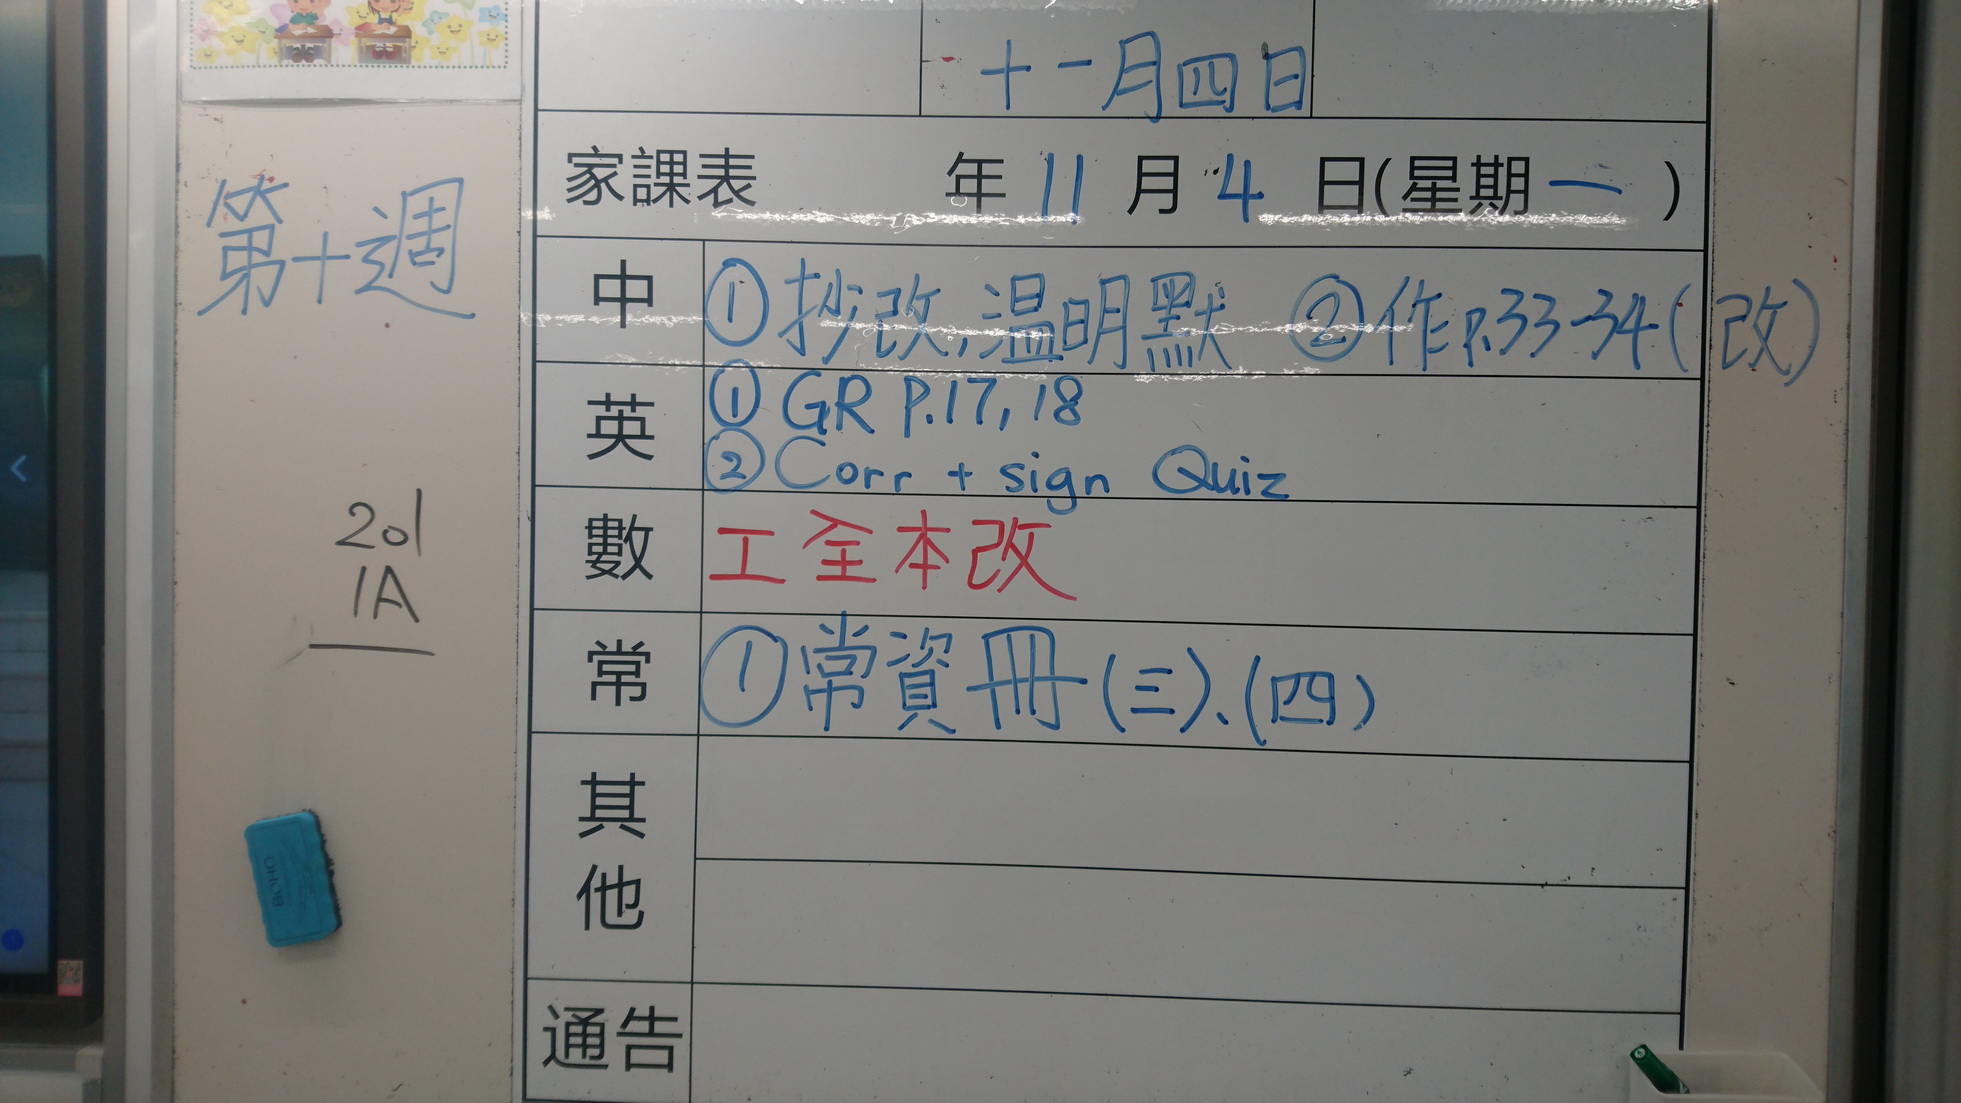 十一月四日
家課表 年 11 月 4 日(星期一)
第十週
中 ①抄改,温明默 ②作P.33-34(改)
英 ① GR P.17, 18
② Corr + sign Quiz
數 工全本改
常 ①常資冊(三)、(四)
201
1A
其他
通告